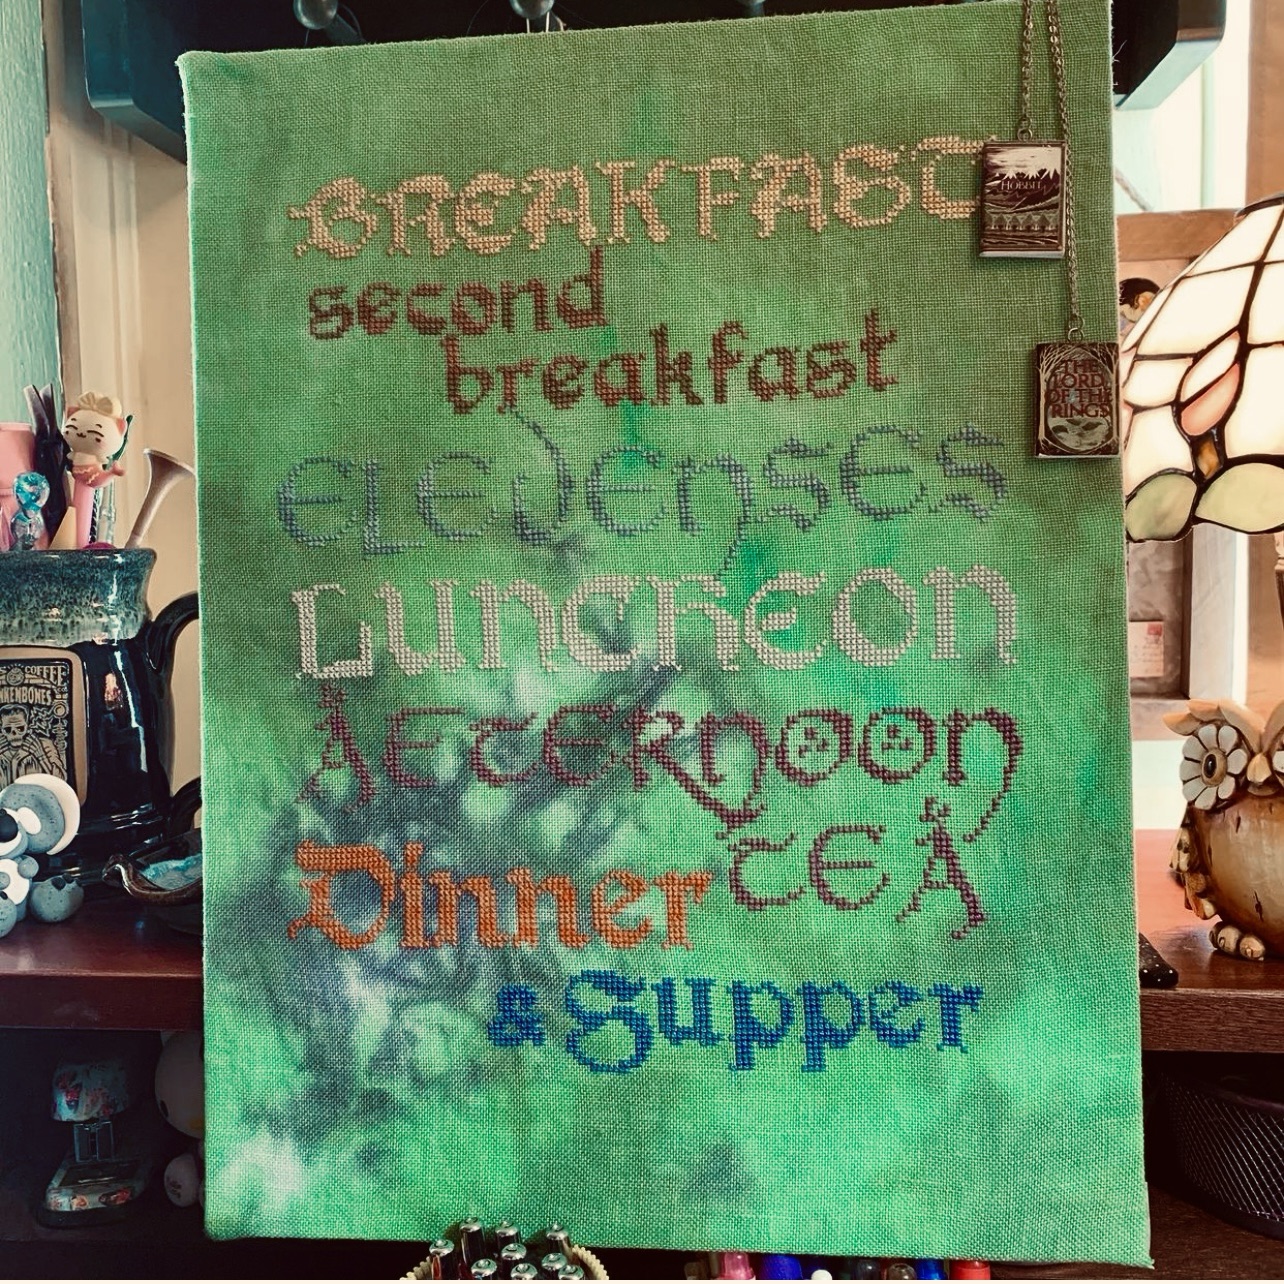 BREAKFAST
second
breakfast
eLevenses
Luncheon
AFTERNOON
TEA
Dinner
& Supper
HOBBIT
THE
LORD
OF THE
RINGS
COFFEE